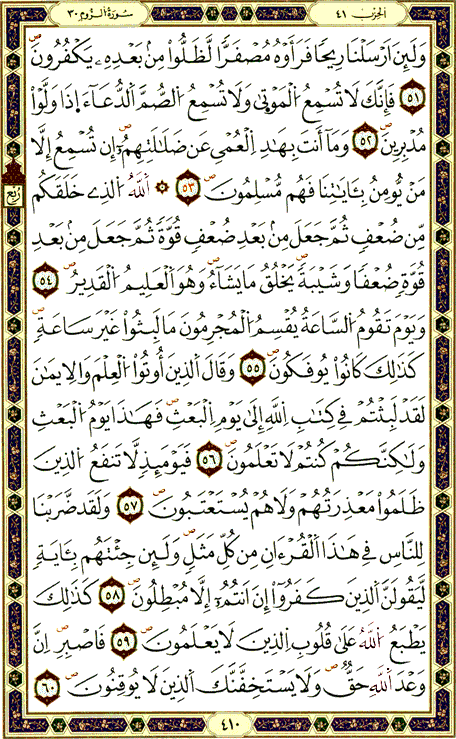 الحزب ٤١
سورة الروم ٣٠
وَلَئِنَ اَرْسَلْنَا رِيحًا فَرَأَوْهُ مُصْفَرًّا لَّظَلُّوا مِنۢ بَعْدِهِۦ يَكْفُرُونَ
٥١ فَإِنَّكَ لَا تُسْمِعُ اُلْمَوْتٜىٰ وَلَا تُسْمِعُ اُلصُّمَّ اَلدُّعَآءَ اِذَا وَلَّوْا
مُدْبِرِينَ ٥٢ وَمَآ أَنتَ بِهَٰدِ اِلْعُمْيِ عَن ضَلَٰلَتِهِمُۥٓ إِن تُسْمِعُ إِلَّا
مَنْ يُّومِنُ بِـَٔايَٰتِنَا فَهُم مُّسْلِمُونَ ٥٣ ۞ اَللَّهُ اُلَّذِے خَلَقَكُم
مِّن ضُعْفٍ ثُمَّ جَعَلَ مِنۢ بَعْدِ ضُعْفٍ قُوَّةً ثُمَّ جَعَلَ مِنۢ بَعْدِ
قُوَّةٍ ضُعْفًا وَشَيْبَةً يَخْلُقُ مَا يَشَآءُ وَهُوَ اَلْعَلِيمُ اُلْقَدِيرُ ٥٤
وَيَوْمَ تَقُومُ اُلسَّاعَةُ يُقْسِمُ اُلْمُجْرِمُونَ مَا لَبِثُوا غَيْرَ سَاعَةٍ
كَذَٰلِكَ كَانُوا يُوفَكُونَ ٥٥ وَقَالَ اَلَّذِينَ أُوتُوا اُلْعِلْمَ وَالِايمَٰنَ
لَقَدْ لَبِثْتُمْ فِے كِتَٰبِ اِللَّهِ إِلَىٰ يَوْمِ اِلْبَعْثِ فَهَٰذَا يَوْمُ اُلْبَعْثِ
وَلَٰكِنَّكُمْ كُنتُمْ لَا تَعْلَمُونَ ٥٦ فَيَوْمَئِذٍ لَّا تَنفَعُ اُلَّذِينَ
ظَلَمُوا مَعْذِرَتُهُمْ وَلَا هُمْ يُسْتَعْتَبُونَ ٥٧ وَلَقَد ضَّرَبْنَا
لِلنَّاسِ فِے هَٰذَا اَلْقُرْءَانِ مِن كُلِّ مَثَلٍ وَلَئِن جِئْتَهُم بِـَٔايَةٍ
لَّيَقُولَنَّ اَلَّذِينَ كَفَرُوٓا إِنَ اَنتُمُۥٓ إِلَّا مُبْطِلُونَ ٥٨ كَذَٰلِكَ
يَطْبَعُ اُللَّهُ عَلَىٰ قُلُوبِ اِلَّذِينَ لَا يَعْلَمُونَ ٥٩ فَاصْبِرِ اِنَّ
وَعْدَ اَللَّهِ حَقٌّ وَلَا يَسْتَخِفَّنَّكَ اَلَّذِينَ لَا يُوقِنُونَ ٦٠
ربع
٤١٠